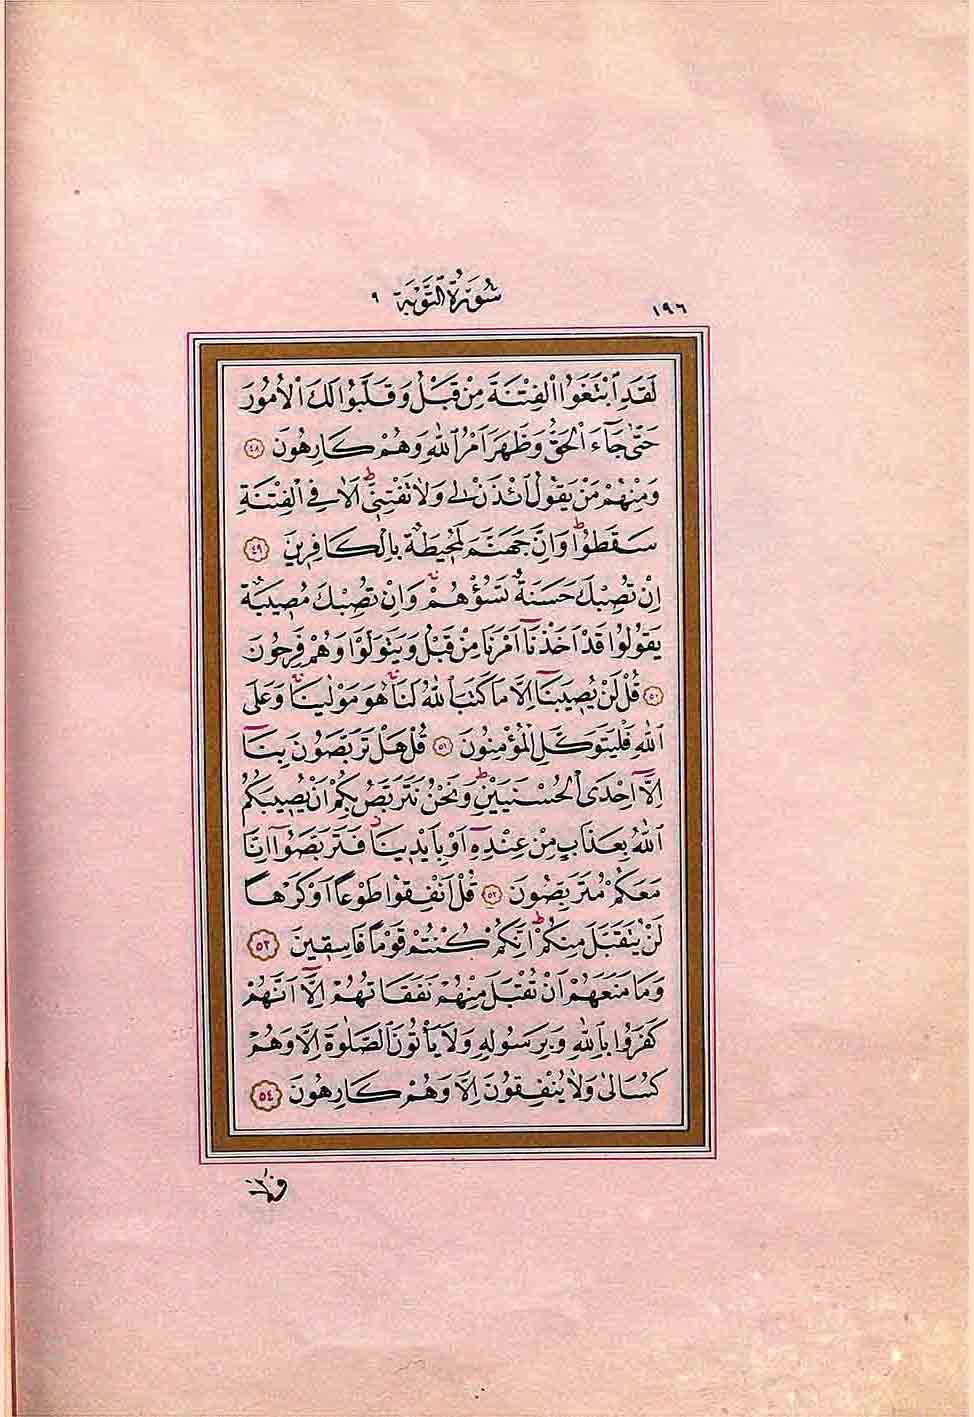 ١٩٦ سُورَةُ التَّوْبَةِ ٩
لَقَدِ ابْتَغَوُا الْفِتْنَةَ مِنْ قَبْلُ وَقَلَّبُوا لَكَ الْاُمُورَ
حَتّٰى جَٓاءَ الْحَقُّ وَظَهَرَ اَمْرُ اللّٰهِ وَهُمْ كَارِهُونَ ٤٨
وَمِنْهُمْ مَنْ يَقُولُ ائْذَنْ لٖى وَلَا تَفْتِنّٖىؕ اَلَا فِى الْفِتْنَةِ
سَقَطُواؕ وَاِنَّ جَهَنَّمَ لَمُحٖيطَةٌ بِالْكَافِرٖينَ ٤٩
اِنْ تُصِبْكَ حَسَنَةٌ تَسُؤْهُمْۚ وَاِنْ تُصِبْكَ مُصٖيبَةٌ
يَقُولُوا قَدْ اَخَذْنَٓا اَمْرَنَا مِنْ قَبْلُ وَيَتَوَلَّوْا وَهُمْ فَرِحُونَ
٥٠ قُلْ لَنْ يُصٖيبَنَٓا اِلَّا مَا كَتَبَ اللّٰهُ لَنَاۚ هُوَ مَوْلٰينَاۚ وَعَلَى
اللّٰهِ فَلْيَتَوَكَّلِ الْمُؤْمِنُونَ ٥١ قُلْ هَلْ تَرَبَّصُونَ بِنَٓا
اِلَّٓا اِحْدَى الْحُسْنَيَيْنِؕ وَنَحْنُ نَتَرَبَّصُ بِكُمْ اَنْ يُصٖيبَكُمُ
اللّٰهُ بِعَذَابٍ مِنْ عِنْدِهٖٓ اَوْ بِاَيْدٖينَاؗ فَتَرَبَّصُٓوا اِنَّا
مَعَكُمْ مُتَرَبِّصُونَ ٥٢ قُلْ اَنْفِقُوا طَوْعًا اَوْ كَرْهًا
لَنْ يُتَقَبَّلَ مِنْكُمْؕ اِنَّكُمْ كُنْتُمْ قَوْمًا فَاسِقٖينَ ٥٣
وَمَا مَنَعَهُمْ اَنْ تُقْبَلَ مِنْهُمْ نَفَقَاتُهُمْ اِلَّٓا اَنَّهُمْ
كَفَرُوا بِاللّٰهِ وَبِرَسُولِهٖ وَلَا يَاْتُونَ الصَّلٰوةَ اِلَّا وَهُمْ
كُسَالٰى وَلَا يُنْفِقُونَ اِلَّا وَهُمْ كَارِهُونَ ٥٤
فَلَا